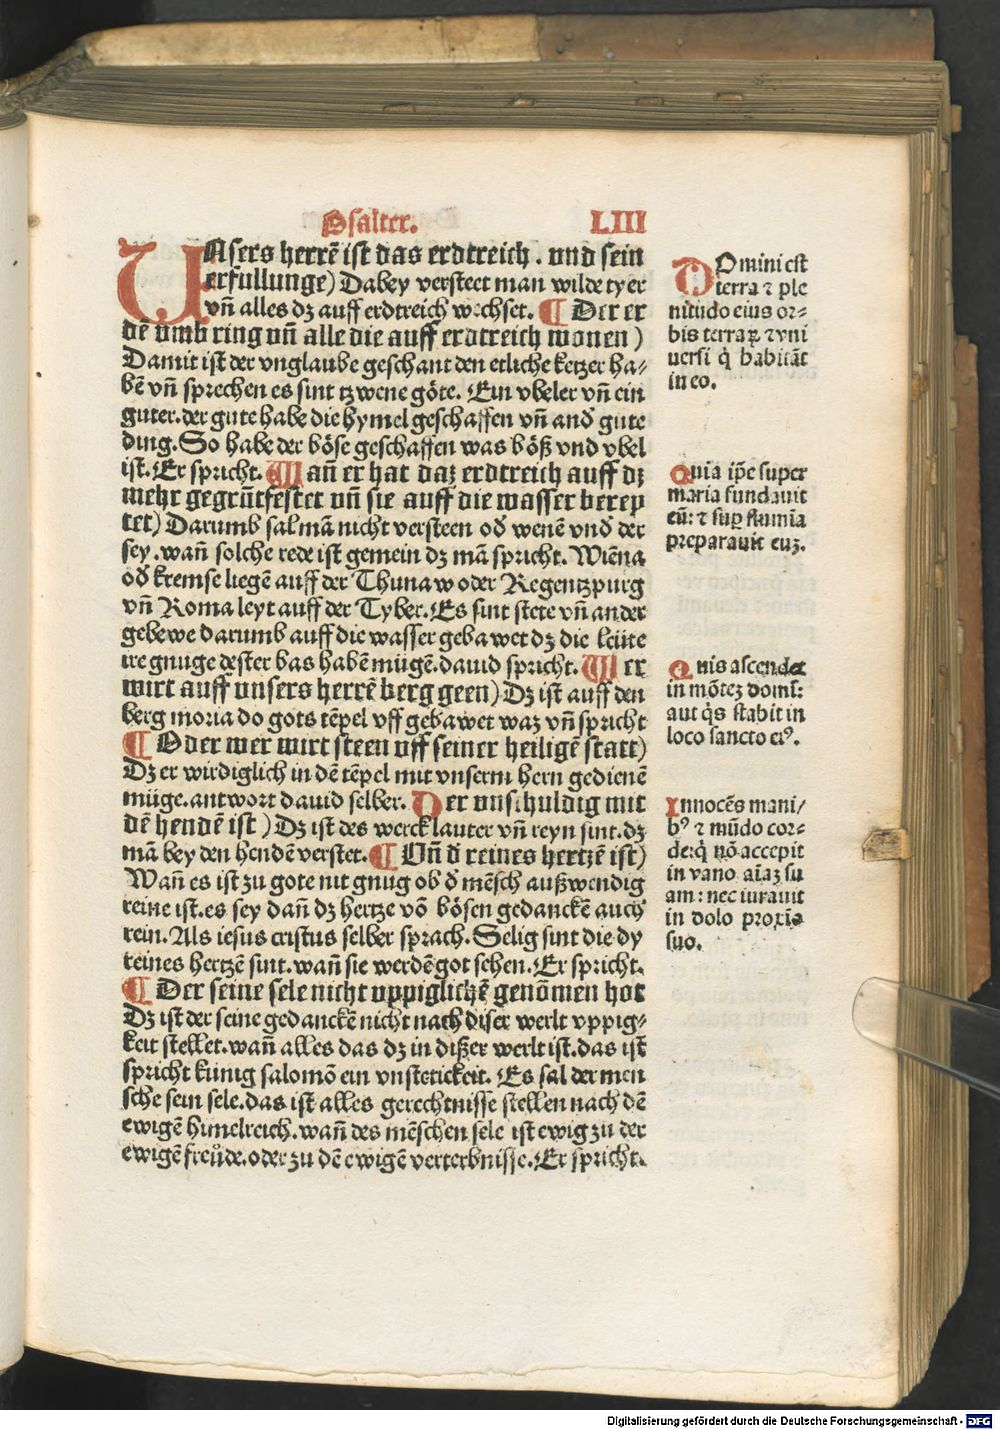 Psalter. LIII
UNsers herrē ist das erdtreich . und sein
erfullunge) Dabey versteet man wilde tyer
vñ alles dz auff erdtreich wechset. ¶ Der er
dē umb ring uñ alle die auff erdtreich wonen )
Damit ist der vnglaube geschant den etliche ketzer ha⸗
bē vñ sprechen es sint tzwene göte. Ein vbeler vñ ein
guter.der gute habe die hymel geschaffen vñ and̄ gute
ding. So habe der böse geschaffen was böß vnd vbel
ist. Er spricht. Wañ er hat daz erdtreich auff dz
mehr gegrūtfestet uñ sie auff die wasser berep
tet) Darumb sal mā nicht versteen od̄ wenē vnd der
sey.wañ solche rede ist gemein dz mā spricht. Wiēna
od̄ kremse liegē auff der Thunaw oder Regentzpurg
vñ Roma leyt auff der Tyber. Es sint stete vñ ander
gebewe darumb auff die wasser gebawet dz die leüte
ire gnuge dester bas habē mügē.dauid spricht. Wer
wirt auff unsers herrē berg geen) Dz ist auff den
berg moria do gots tēpel vff gebawet waz vñ spricht
¶ Oder wer wirt steen uff seiner heiligē statt)
Dz er wirdiglich in dē tēpel mit vnserm hern gedienē
müge.antwort dauid selber. Der unschuldig mit
dē hendē ist ) Dz ist des werck lauter vñ reyn sint.dz
mā bey den hendē verstet. ¶ Uñ d̄ reines hertzē ist)
Wañ es ist zu gote nit gnug ob d̄ mēsch außwendig
reine ist.es sey dañ dz hertze vō bösen gedanckē auch
rein. Als iesus cristus selber sprach. Selig sint die dy
reines hertzē sint.wañ sie werdē got sehen. Er spricht.
¶ Der seine sele nicht uppiglichē genōmen hot
Dz ist der seine gedanckē nicht nach diser werlt vppig⸗
keit stellet.wañ alles das dz in dißer werlt ist.das ist
spricht künig salomō ein vnstetickeit. Es sal der men
sche sein sele.das ist alles gerechtnisse stellen nach dē
ewigē himelreich.wañ des mēschen sele ist ewig zu der
ewigē freůde.oder zu dē ewigē verterbnisse. Er spricht.
DOmini est
terra ⁊ ple
nitudo eius or⸗
bis terraꝝ ⁊ vni
uersi q̇ habitāt
in eo.
Quia ip̄e super
maria fundauit
eū: ⁊ suꝑ flumīa
preparauit euz.
Quis ascendet
in mōtez domī:
aut q̇s stabit in
loco sancto eiꝰ.
Innocēs mani/
bꝰ ⁊ mūdo cor⸗
de:q̇ nō accepit
in vano aīaz su
am: nec iurauit
in dolo proxīo
suo.
Digitalisierung gefördert durch die Deutsche Forschungsgemeinschaft - DFG